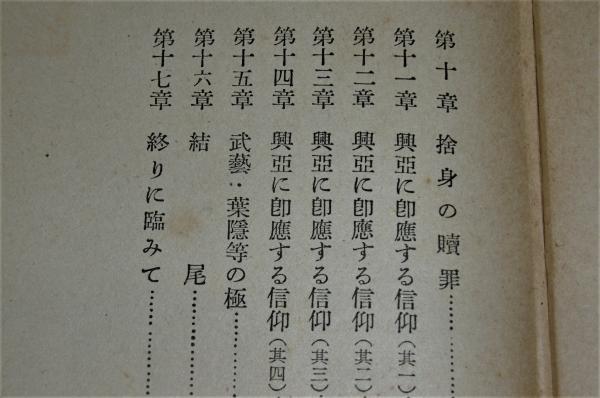 第十章 捨身の贖罪………
第十一章 興亞に卽應する信仰(其一)
第十二章 興亞に卽應する信仰(其二)
第十三章 興亞に卽應する信仰(其三)
第十四章 興亞に卽應する信仰(其四)
第十五章 武藝・葉隱等の極………
第十六章 結尾………
第十七章 終りに臨みて………